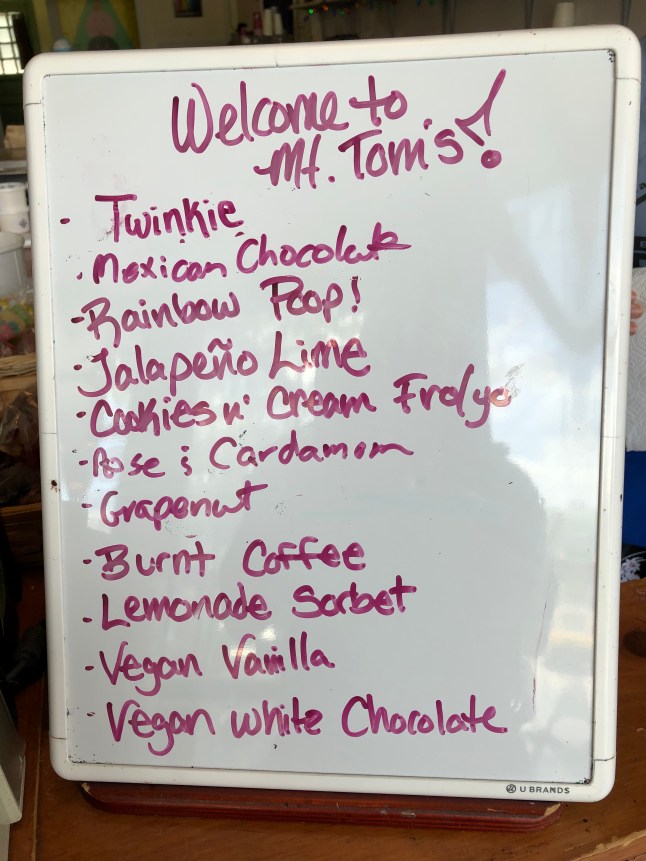 Welcome to
Mt. Tom's!
· Twinkie
· Mexican Chocolate
- Rainbow Poop!
· Jalapeño Lime
· Cookies n' Cream Fro/yo
- Rose & Cardamom
- Grapenut
- Burnt Coffee
· Lemonade Sorbet
- Vegan Vanilla
· Vegan White Chocolate
U BRANDS